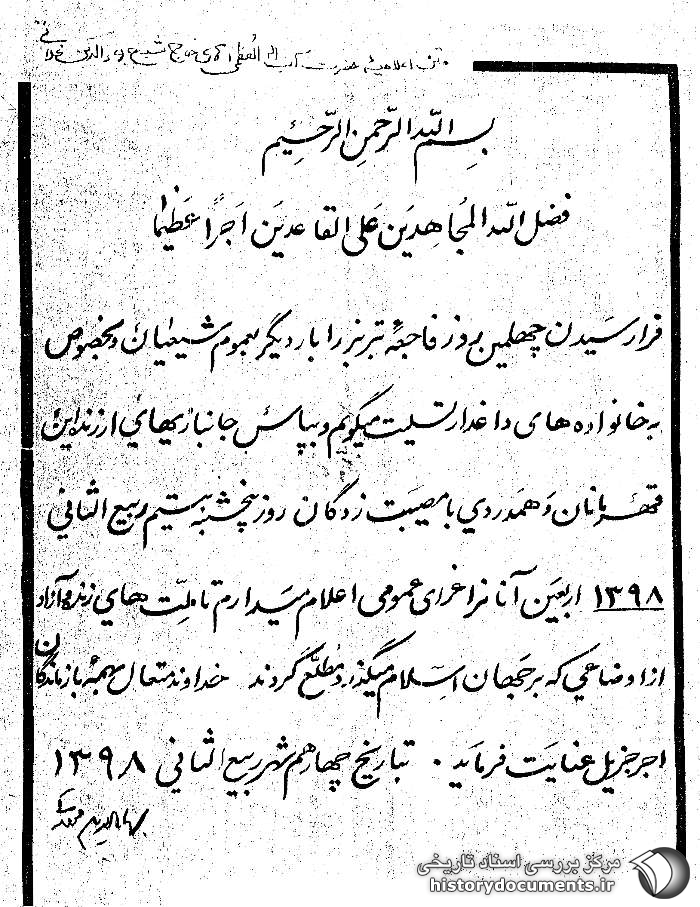 متن اعلامیه حضرت آیت الله العظمی آقای حاج شیخ بهاءالدین محلاتی
بِسمِ اللّهِ الرَّحمنِ الرَّحیمِ
فضل اللّه المُجاهِدینَ عَلی القاعدینَ اَجراً عَظیماً
فرا رسیدن چهلمین روز فاجعهٔ تبریز را بار دیگر بعموم شیعیان و بخصوص
به خانواده های داغدار تسلیت میگویم و بپاس جانبازیهای ارزنده این
قهرمانان و همدردی با مصیبت زدگان روز پنجشنبه بیستم ربیع الثانی
۱۳۹۸ اربعین آنانرا عزای عمومی اعلام میدارم تا ملت های زنده و آزاد
از اوضاعی که بر جهان اسلام میگذرد مطلع گردند خداوند متعال بهمهٔ بازماندگان
اجر جزیل عنایت فرماید . بتاریخ چهاردهم شهر ربیع الثانی ۱۳۹۸
بهاءالدین محلاتی
مرکز بررسی اسناد تاریخی
historydocuments.ir